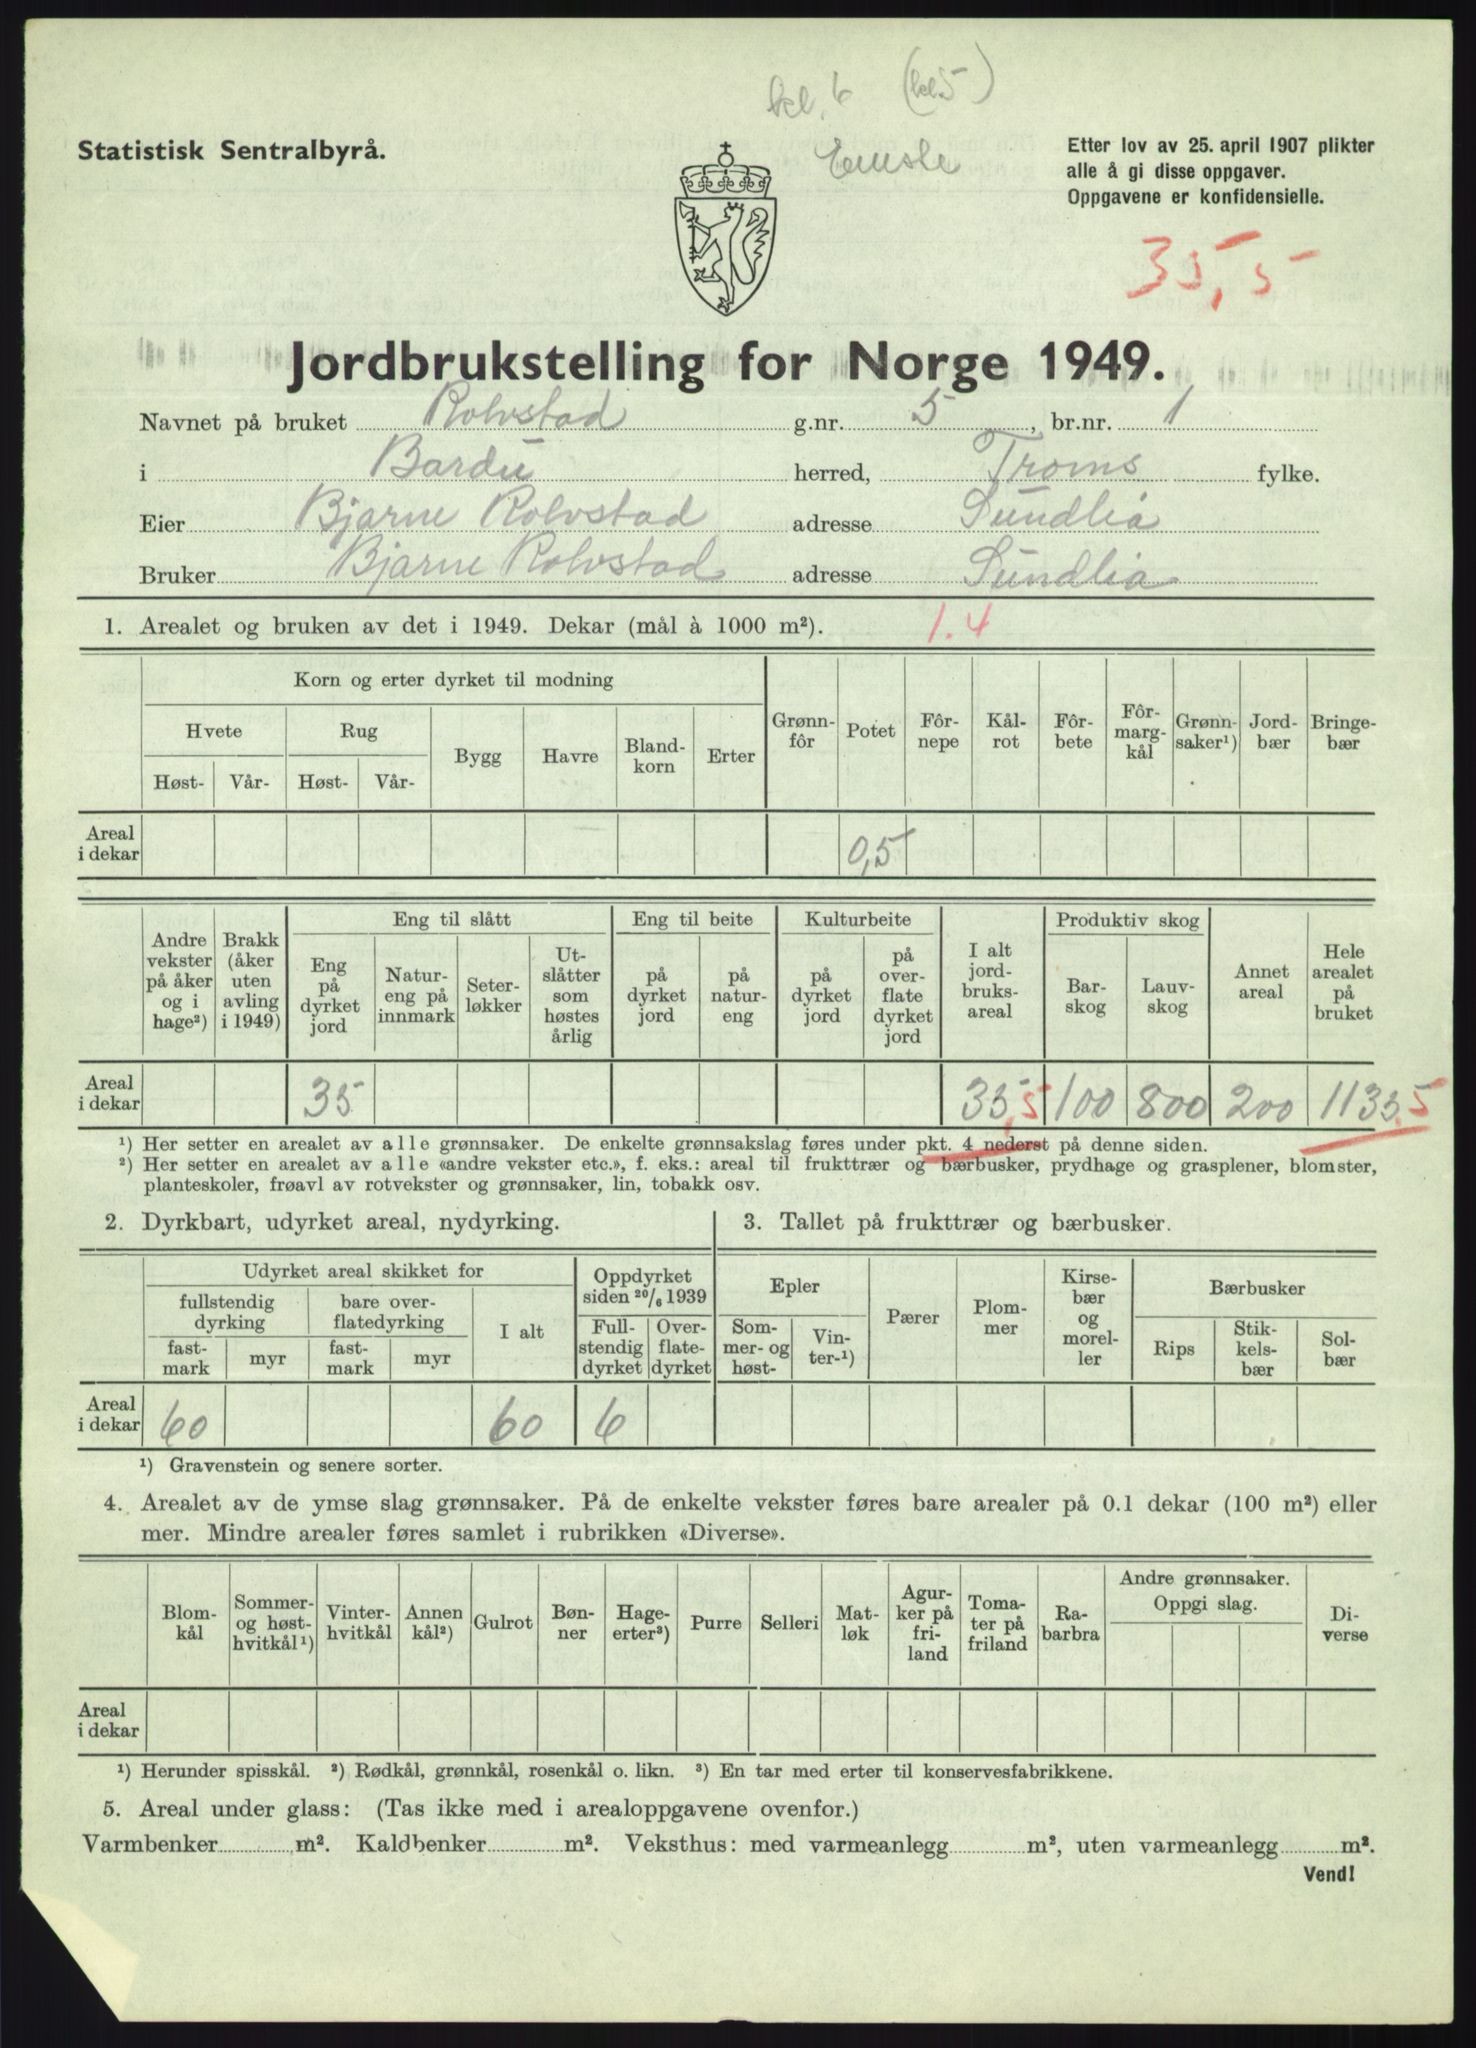 kl. 6 (kl5)
Statistisk Sentralbyrå.
Etter lov av 25. april 1907 plikter
alle å gi disse oppgaver.
Oppgavene er konfidensielle.
35,5
Jordbrukstelling for Norge 1949.
Navnet på bruket Rolvstad g.nr. 5, br.nr. 1
i Bardu herred, Troms fylke.
Eier Bjarne Rolvstad adresse Sundlia
Bruker Bjarne Rolvstad adresse Sundlia
1. Arealet og bruken av det i 1949. Dekar (mål à 1000 m²). 1.4
Korn og erter dyrket til modning
Hvete Rug Bygg Havre Bland-korn Erter Grønn-fôr Potet Fôr-nepe Kål-rot Fôr-bete Fôr-marg-kål Grønn-saker¹) Jord-bær Bringe-bær
Høst- Vår- Høst- Vår-
Areal i dekar 0,5
Andre vekster på åker og i hage²) Brakk (åker uten avling i 1949) Eng til slått Eng til beite Kulturbeite I alt jord-bruks-areal Produktiv skog Annet areal Hele arealet på bruket
Eng på dyrket jord Natur-eng på innmark Seter-løkker Ut-slåtter som høstes årlig på dyrket jord på natur-eng på dyrket jord på over-flate dyrket jord Bar-skog Lauv-skog
Areal i dekar 35 35,5 100 800 200 1135,5
¹) Her setter en arealet av alle grønnsaker. De enkelte grønnsakslag føres under pkt. 4 nederst på denne siden.
²) Her setter en arealet av alle «andre vekster etc.», f. eks.: areal til frukttrær og bærbusker, prydhage og grasplener, blomster,
planteskoler, frøavl av rotvekster og grønnsaker, lin, tobakk osv.
2. Dyrkbart, udyrket areal, nydyrking.
Udyrket areal skikket for Oppdyrket siden ²⁰/₆ 1939
fullstendig dyrking bare over-flatedyrking I alt Full-stendig dyrket Over-flate-dyrket
fast-mark myr fast-mark myr
Areal i dekar 60 60 6
3. Tallet på frukttrær og bærbusker.
Epler Pærer Plom-mer Kirse-bær og morel-ler Bærbusker
Som-mer- og høst- Vin-ter-¹) Rips Stik-kels-bær Sol-bær
¹) Gravenstein og senere sorter.
4. Arealet av de ymse slag grønnsaker. På de enkelte vekster føres bare arealer på 0.1 dekar (100 m²) eller
mer. Mindre arealer føres samlet i rubrikken «Diverse».
Blom-kål Sommer- og høst-hvitkål¹) Vinter-hvitkål Annen kål²) Gulrot Bøn-ner Hage-erter³) Purre Selleri Mat-løk Agur-ker på fri-land Toma-ter på friland Ra-barbra Andre grønnsaker. Oppgi slag. Di-verse
Areal i dekar
¹) Herunder spisskål. ²) Rødkål, grønnkål, rosenkål o. likn. ³) En tar med erter til konservesfabrikkene.
5. Areal under glass: (Tas ikke med i arealoppgavene ovenfor.)
Varmbenker m². Kaldbenker m². Veksthus: med varmeanlegg m², uten varmeanlegg m².
Vend!